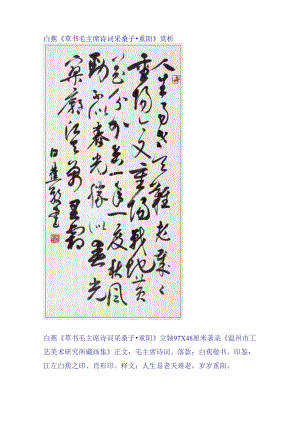 白蕉《草书毛主席诗词采桑子•重阳》赏析
人生易老天難老歲歲
重陽今又重陽戰地黃
花分外香一年一度秋風
勁不似春光勝似春光
寥廓江天萬里霜
白蕉敬書
白蕉《草书毛主席诗词采桑子•重阳》立轴97X48厘米著录《温州市工
艺美术研究所藏画集》正文：毛主席诗词。落款：白蕉敬书。印鉴：
江左白蕉之印、肖形印。释文：人生易老天难老，岁岁重阳。